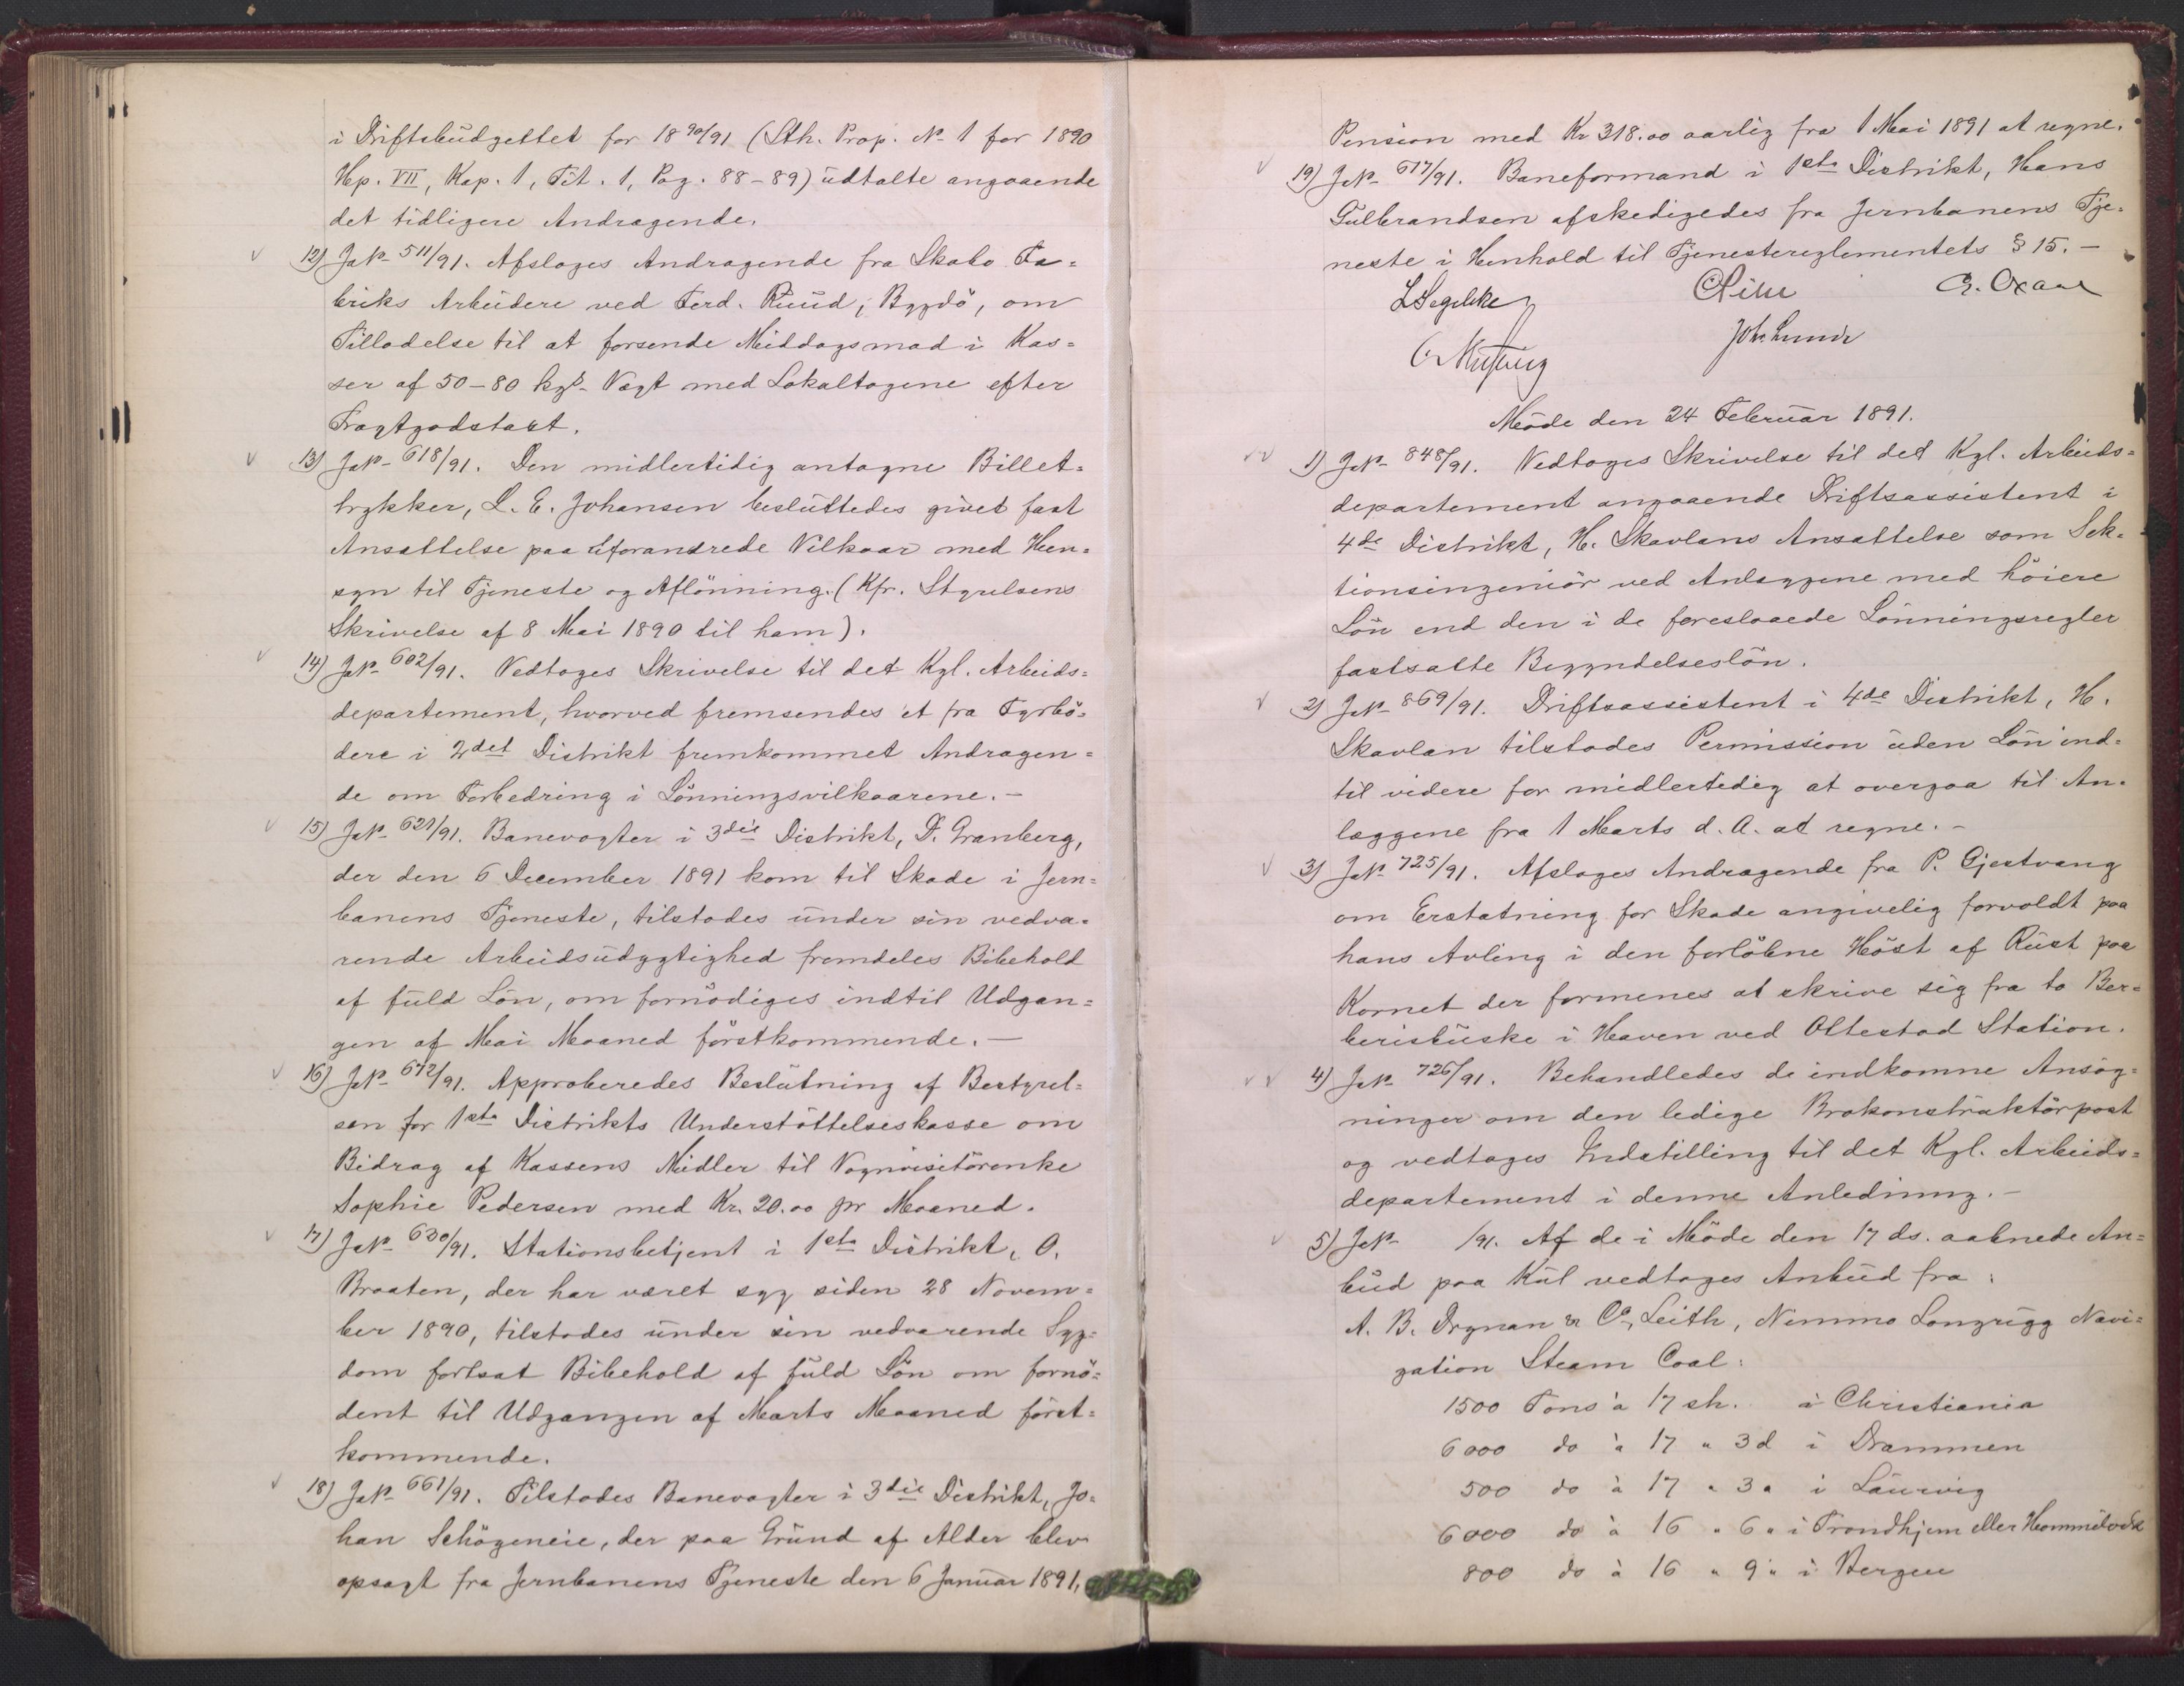 i Driftsbudgettet for 18 90/91 (Sth. Prop. No 1 for 1890
Hp. VII, Kap. 1, Tit. 1, Pag. 88-89) udtalte angaaende
det tidligere Andragende.
12) JNo 511/91. Afsloges Andragende fra Skabo Fa=
briks Arbeidere ved Ferd. Ruud, Bygdö, om
Tilladelse til at forsende Middagsmad i Kas=
ser af 50-80 kgs Vægt med Lokaltogene efter
Fragtgodstaxt.
13) JNo 618/91. Den midlertidig antagne Billet=
trykker, L. E. Johansen besluttedes givet fast
Ansættelse paa uforandrede Vilkaar med Hen=
syn til Tjeneste og Aflönning. (Kfr. Styrelsens
Skrivelse af 8 Mai 1890 til ham).
14) JNo 602/91. Vedtoges Skrivelse til det Kgl. Arbeids=
departement, hvorved fremsendes et fra Fyrbö=
dere i 2det Distrikt fremkommet Andragen=
de om Forbedring i Lönningsvilkaarene.-
15) JNo 621/91. Banevogter i 3die Distrikt, D. Granberg,
der den 6 December 1891 kom til Skade i Jern=
banens Tjeneste, tilstodes under sin vedva=
rende Arbeidsudygtighed fremdeles Bibehold
af fuld Lön, om fornödiges indtil Udgan=
gen af Mai Maaned förstkommende.-
16) JNo 672/91. Approberedes Beslutning af Bestyrel=
sen for 1ste Distrikts Understöttelseskasse om
Bidrag af Kassens Midler til Vognvisitörenke
Sophie Pedersen med Kr. 20.00 pr Maaned.
17) JNo 630/91. Stationsbetjent i 1ste Distrikt, O.
Braaten, der har været syg siden 28 Novem=
ber 1890, tilstodes under sin vedvarende Syg=
dom fortsat Bibehold af fuld Lön om fornö=
dent til Udgangen af Marts Maaned först=
kommende.
18) JNo 661/91. Tilstodes Banevogter i 3die Distrikt, Jo=
han Schögeneie, der paa Grund af Alder blev
opsagt fra Jernbanens Tjeneste den 6 Januar 1891,
Pension med Kr 318.00 aarlig fra 1 Mai 1891 at regne.
19) JNo 617/91. Baneformand i 1ste Distrikt, Hans
Gulbrandsen afskedigedes fra Jernbanens Tje=
neste i Henhold til Tjenestereglementets § 15.-
LSegelcke
Joh. Lunde
Möde den 24 Februar 1891.
1) JNo 848/91. Vedtoges Skrivelse til det Kgl. Arbeids=
departement angaaende Driftsassistent i
4de Distrikt, H. Skavlans Ansættelse som Sek=
tionsingeniör ved Anlæggene med höiere
Lön end den i de foreslaaede Lönningsregler
fastsatte Begyndelseslön.
2) JNo 869/91. Driftsassistent i 4de Distrikt, H.
Skavlan tilstodes Permission uden Lön ind=
til videre for midlertidig at overgaa til An=
læggene fra 1 Marts d. A. at regne.-
3) JNo 725/91. Afsloges Andragende fra P. Gjestvang
om Erstatning for Skade angivelig forvoldt paa
hans Avling i den forlöbne Höst af Rust paa
Kornet der formenes at skrive sig fra to Ber=
berisbuske i Haven ved Ottestad Station.
4) JNo 726/91. Behandledes de indkomne Ansög=
ninger om den ledige Brokonstruktörpost
og vedtoges Indstilling til det Kgl. Arbeids=
departement i denne Anledning.-
5) JNo /91. Af de i Möde den 17 ds. aabnede An=
bud paa Kul vedtoges Anbud fra:
A. B. Drynan & Co, Leith, Nimmo Longrigg Navi=
gation Steam Coal:
1500 Tons à 17 sh. i Christiania
6000 do à 17 " 3d i Drammen
500 do à 17 " 3 " i Laurvig
6000 do à 16 " 6 " i Trondhjem eller Hommelvik
800 do à 16 " 9 " i Bergen